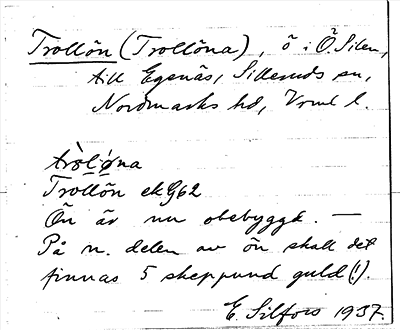 Trollön (Trollöna), ö i Ö. Silen,
till Egenäs, Silleruds sn,
Nordmarks hd, Vrml l.
tròl̥ö́na
Trollön ek G62
Ön är nu obebyggt. —
På n. delen av ön skall det
finnas 5 skeppund guld (!).
E. Silfors 1937.